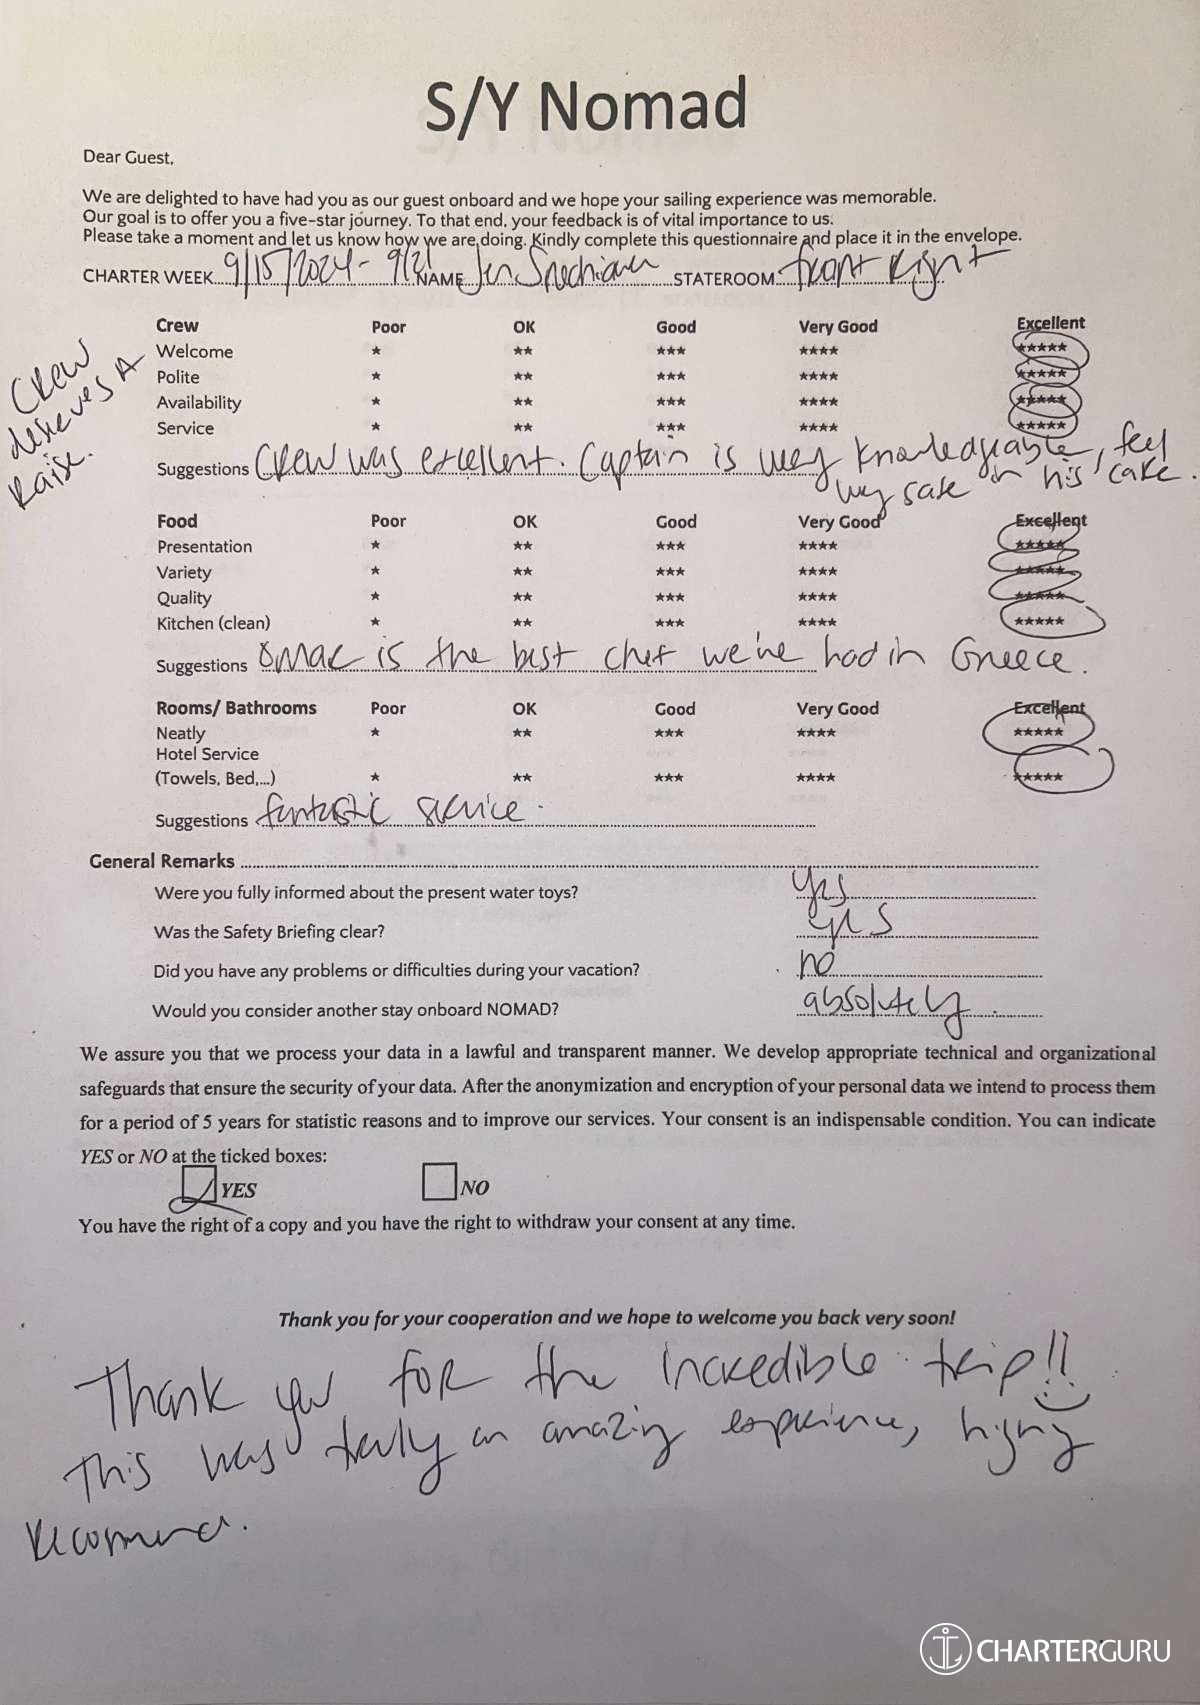 S/Y Nomad
Dear Guest,
We are delighted to have had you as our guest onboard and we hope your sailing experience was memorable.
Our goal is to offer you a five-star journey. To that end, your feedback is of vital importance to us.
Please take a moment and let us know how we are doing. Kindly complete this questionnaire and place it in the envelope.
CHARTER WEEK 9/15/2024 - 9/21 NAME Jen STATEROOM front Right
Crew Poor OK Good Very Good Excellent
Welcome ★ ★★ ★★★ ★★★★ ★★★★★
Polite ★ ★★ ★★★ ★★★★ ★★★★★
Availability ★ ★★ ★★★ ★★★★ ★★★★★
Service ★ ★★ ★★★ ★★★★ ★★★★★
Crew
deserves A
Raise.
Suggestions Crew was excellent. Captain is very knowledgeable, feel
very safe in his care.
Food Poor OK Good Very Good Excellent
Presentation ★ ★★ ★★★ ★★★★ ★★★★★
Variety ★ ★★ ★★★ ★★★★ ★★★★★
Quality ★ ★★ ★★★ ★★★★ ★★★★★
Kitchen (clean) ★ ★★ ★★★ ★★★★ ★★★★★
Suggestions Omac is the best chef we've had in Greece.
Rooms/ Bathrooms Poor OK Good Very Good Excellent
Neatly ★ ★★ ★★★ ★★★★ ★★★★★
Hotel Service
(Towels, Bed,...) ★ ★★ ★★★ ★★★★ ★★★★★
Suggestions fantastic service.
General Remarks
Were you fully informed about the present water toys? yes
Was the Safety Briefing clear? yes
Did you have any problems or difficulties during your vacation? no
Would you consider another stay onboard NOMAD? absolutely.
We assure you that we process your data in a lawful and transparent manner. We develop appropriate technical and organizational
safeguards that ensure the security of your data. After the anonymization and encryption of your personal data we intend to process them
for a period of 5 years for statistic reasons and to improve our services. Your consent is an indispensable condition. You can indicate
YES or NO at the ticked boxes:
YES NO
You have the right of a copy and you have the right to withdraw your consent at any time.
Thank you for your cooperation and we hope to welcome you back very soon!
Thank you for the incredible trip!!
This was truly an amazing experience, highly
recommend.
CHARTERGURU